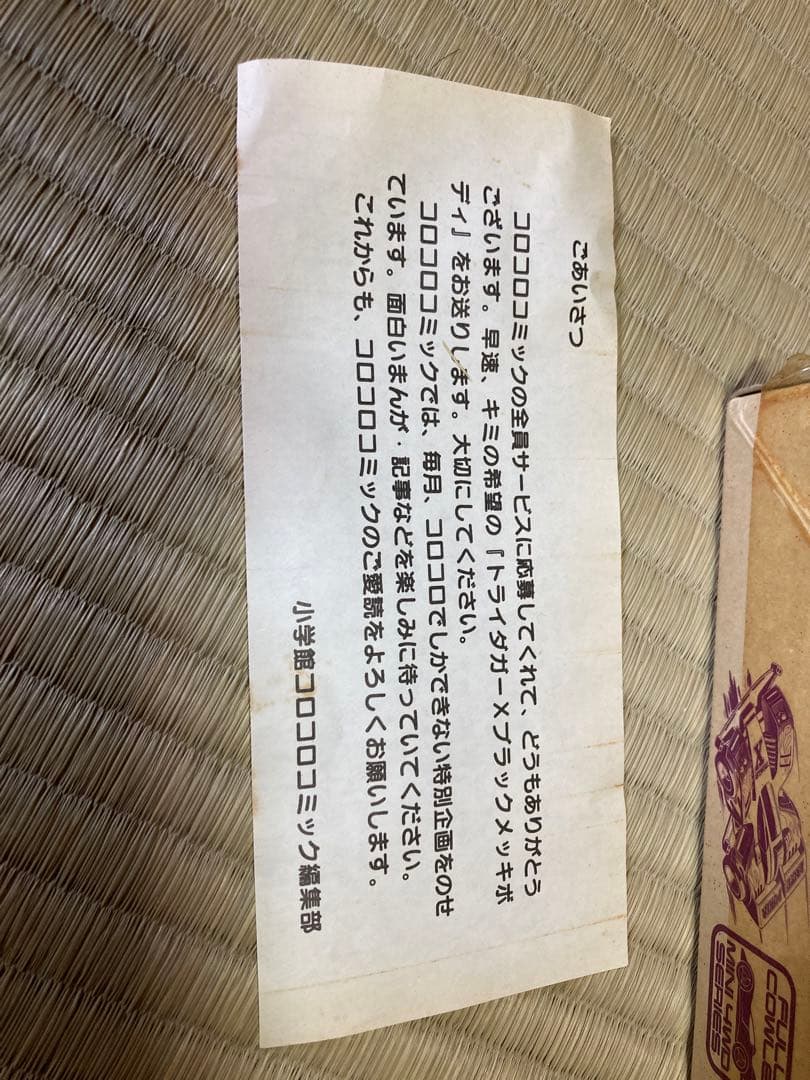 ごあいさつ
コロコロコミックの全員サービスに応募してくれて、どうもありがとう
ございます。早速、キミの希望の『トライダガーXブラックメッキボ
ディ』をお送りします。大切にしてください。
コロコロコミックでは、毎月、コロコロでしかできない特別企画をのせ
ています。面白いまんが・記事などを楽しみに待っていてください。
これからも、コロコロコミックのご愛読をよろしくお願いします。
小学館コロコロコミック編集部
FULL
COWLE
MINI 4WD
SERIES